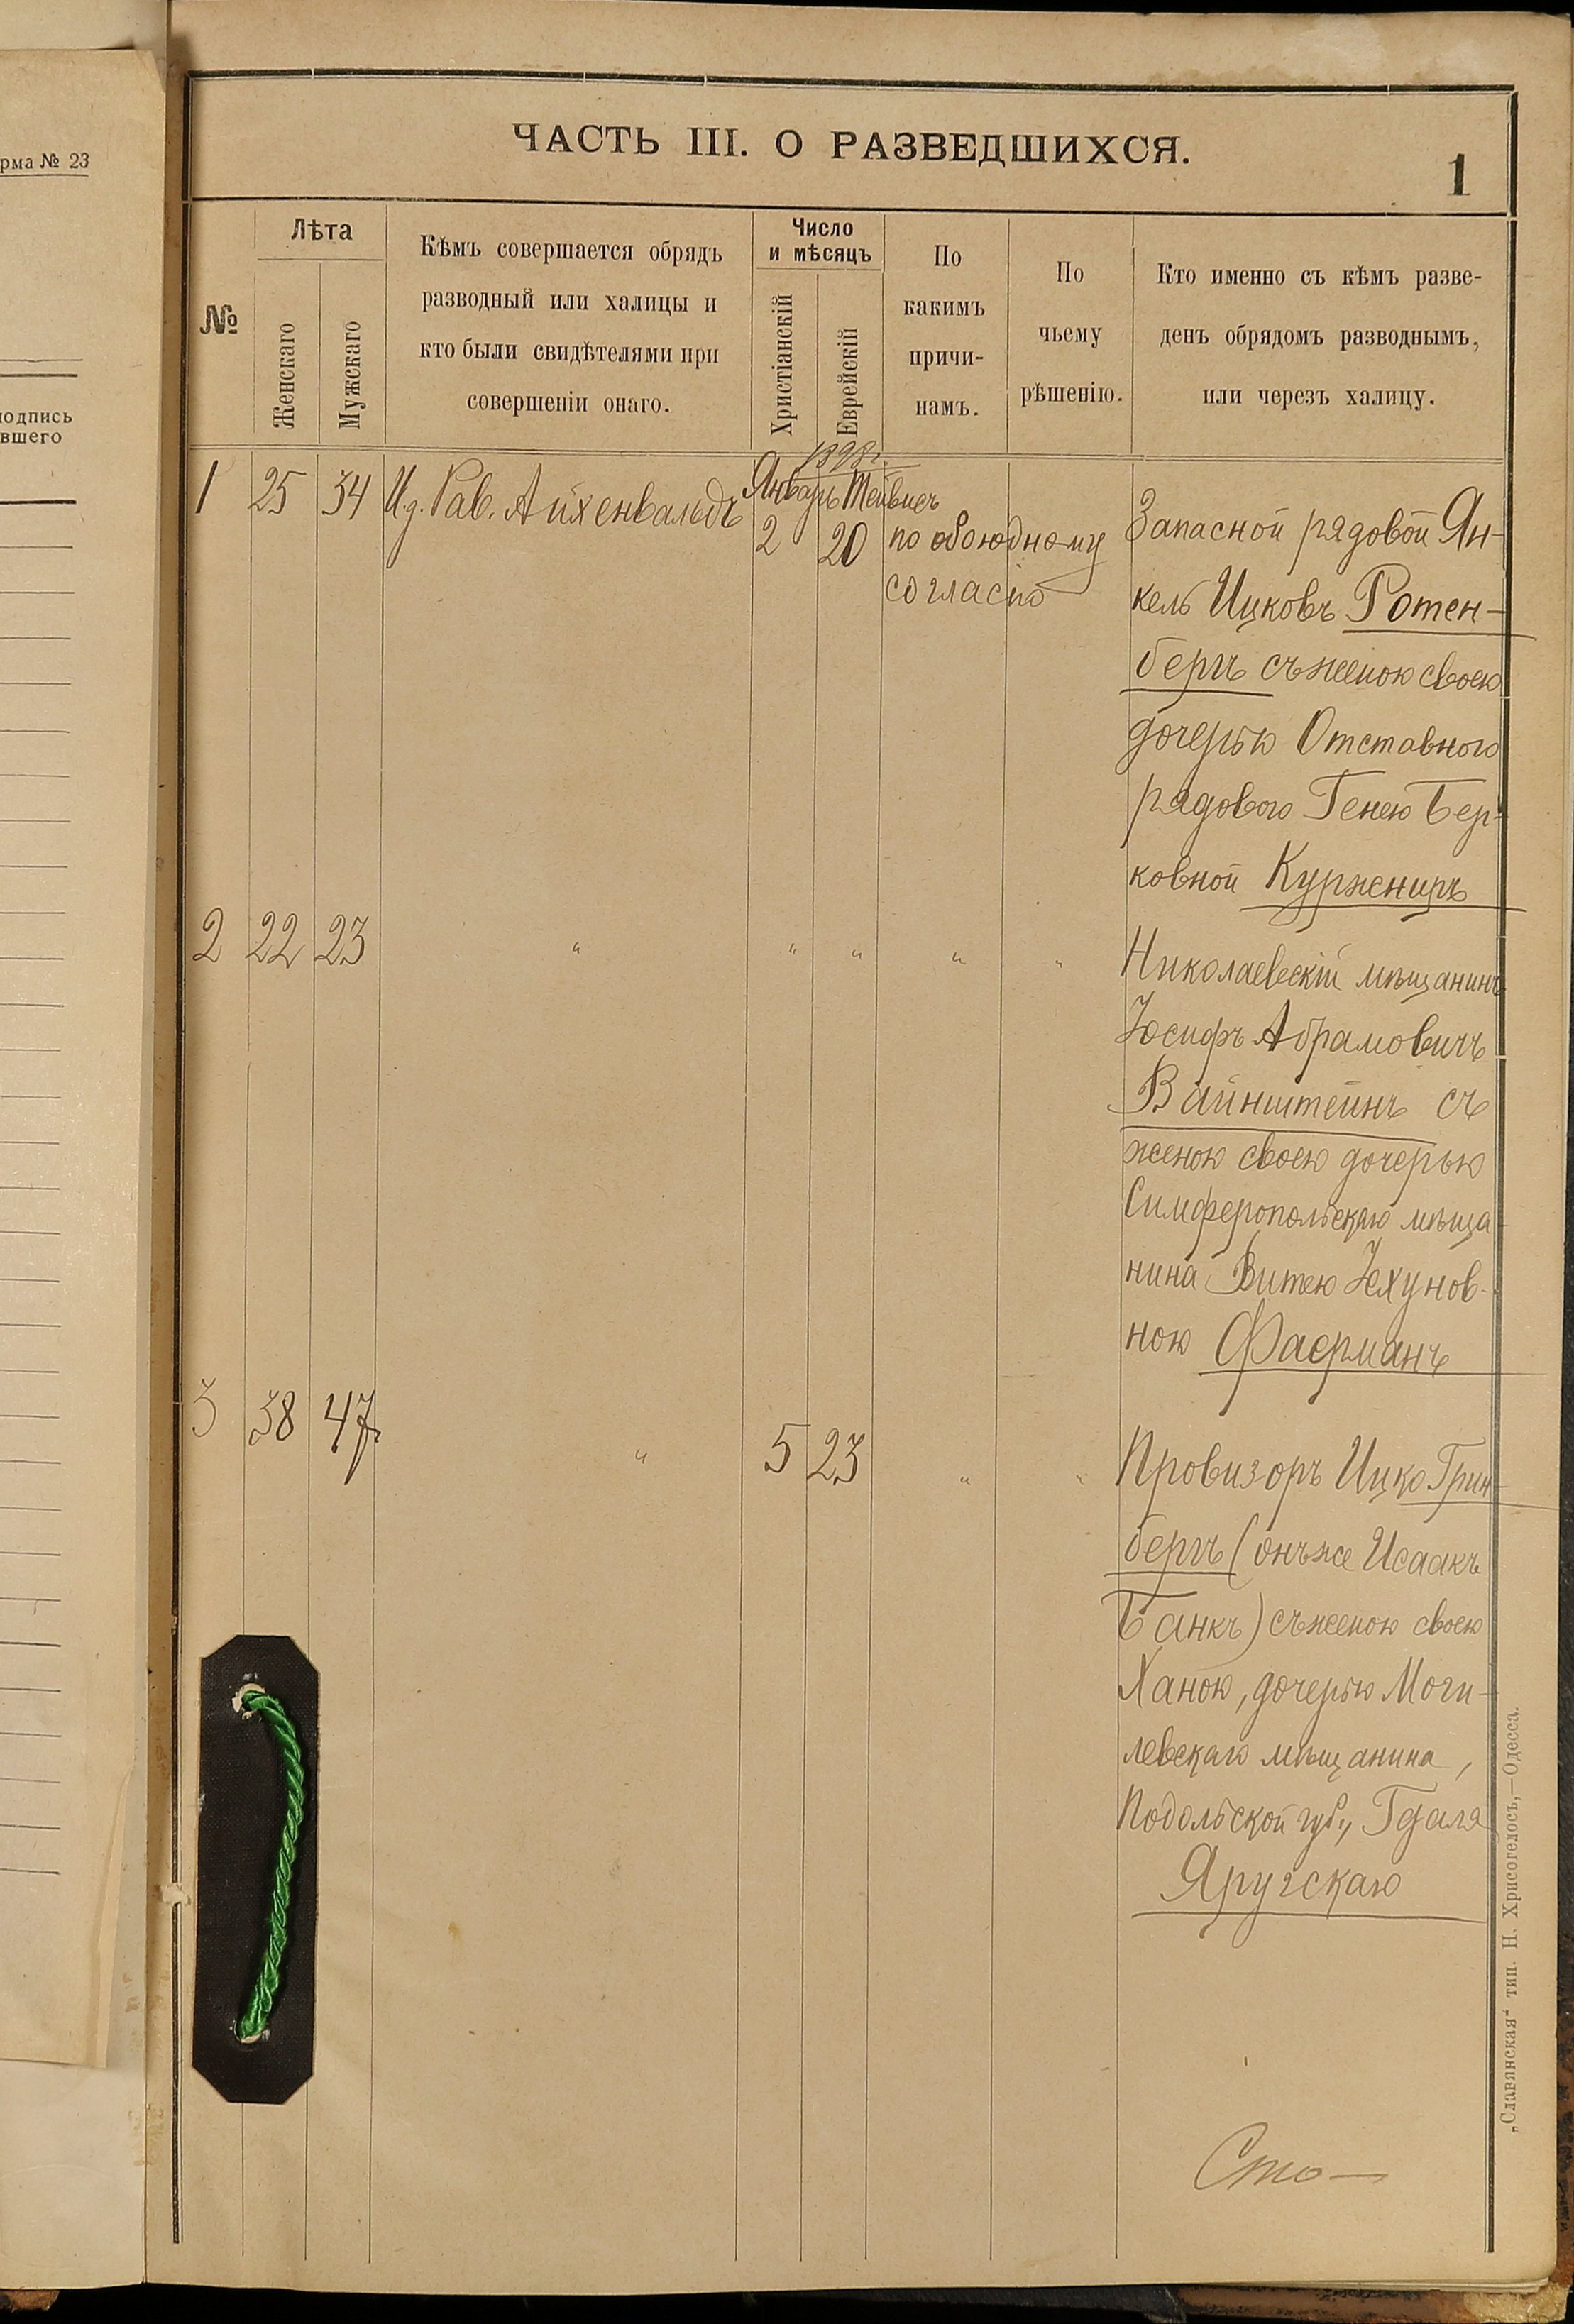 рма № 23
подпись
вшего
ЧАСТЬ III. О РАЗВЕДШИХСЯ.
1
№
Лѣта
Женскаго
Мужскаго
Кѣмъ совершается обрядъ
разводный или халицы и
кто были свидѣтелями при
совершеніи онаго.
Число
и мѣсяцъ
Христіанскій
Еврейскій
По
какимъ
причи-
намъ.
По
чьему
рѣшенію.
Кто именно съ кѣмъ разве-
денъ обрядомъ разводнымъ,
или черезъ халицу.
1898 г.
Январь Тейвисъ
1 25 34 И.д. Рав. Айхенвальдъ 2 20 по обоюдному
согласію
Запасной рядовой Ян-
кель Ицковъ Ротен-
бергъ съ женою своею
дочерью Отставного
рядового Генею Бер-
ковной Курженцъ
2 22 23 " " " " "
Николаевскій мѣщанинъ
Іосифъ Абрамовичъ
Вайнштейнъ съ
женою своею дочерью
Симферопольскаго мѣща-
нина Витею Нехунов-
ною Фаерманъ
3 38 47 " 5 23 " "
Провизоръ Ицко Грин-
бергъ (онъ же Исаакъ
Банкъ) съ женою своею
Ханою, дочерью Моги-
левскаго мѣщанина,
Подольской губ., Гдаля
Яругскаго
Сто—
„Славянская“ тип. Н. Хрисогелосъ,—Одесса.